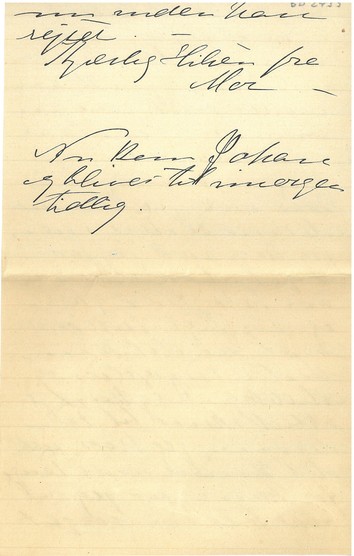 nu inden han
rejser. —
Kærlig Hilsen fra
Mor —
Nu kom Johan
og bliver til imorgen
tidlig.